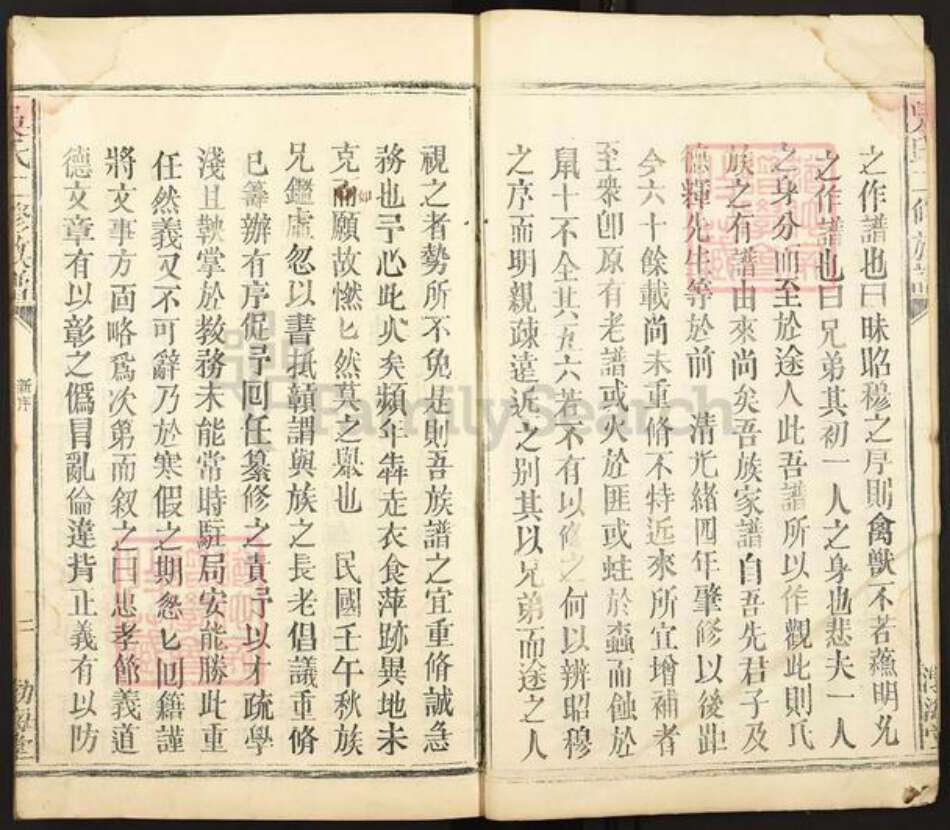 之作譜也曰昧昭穆之序則禽獸不若蘓明允
之作譜也曰兄弟其初一人之身也悲夫一人
之身分而至於途人此吾譜所以作觀此則氏
族之有譜由來尚矣吾族家譜自吾先君子及
德輝先生等於前 清光緒四年肇修以後距
今六十餘載尚未重脩不特近來所宜增補者
至衆卽原有老譜或火於匪或蛀於蟲而蝕於
鼠十不全其五六若不有以修之何以辨昭穆
之序而明親疎遠近之別其以兄弟而途之人
視之者勢所不免是則吾族譜之宜重脩誠急
務也予心此久矣頻年犇走衣食萍跡異地未
克如願故憗匕然莫之舉也 民國壬午秋族
兄鑑虛忽以書抵贛謂與族之長老倡議重脩
已籌辦有序促予回任纂修之責予以才疏學
淺且鞅掌於教務未能常時駐局安能勝此重
任然義又不可辭乃於寒假之期怱匕回籍謹
將文事方面略爲次第而叙之曰忠孝節義道
德文章有以彰之僞冒亂倫違背正義有以防
新序
二
FamilySearch